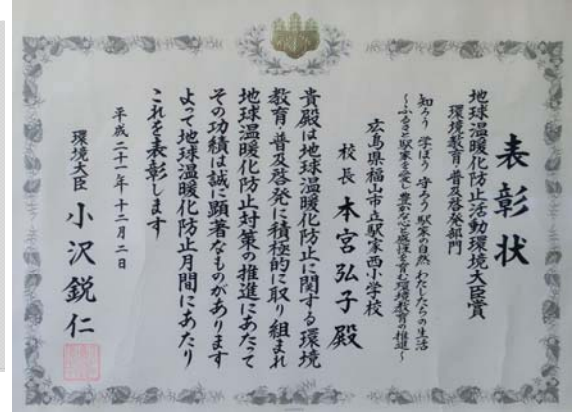 表彰状
地球温暖化防止活動環境大臣賞
環境教育・普及啓発部門
知ろう 学ぼう 守ろう 駅家の自然 わたしたちの生活
～ふるさと駅家を愛し 豊かな心と感性を育む環境教育の推進～
広島県福山市立駅家西小学校
校長 本宮弘子殿
貴殿は地球温暖化防止に関する環境
教育・普及啓発に積極的に取り組まれ
地球温暖化防止対策の推進にあたって
その功績は誠に顕著なものがあります
よって地球温暖化防止月間にあたり
これを表彰します
平成二十一年十二月二日
環境大臣 小沢鋭仁